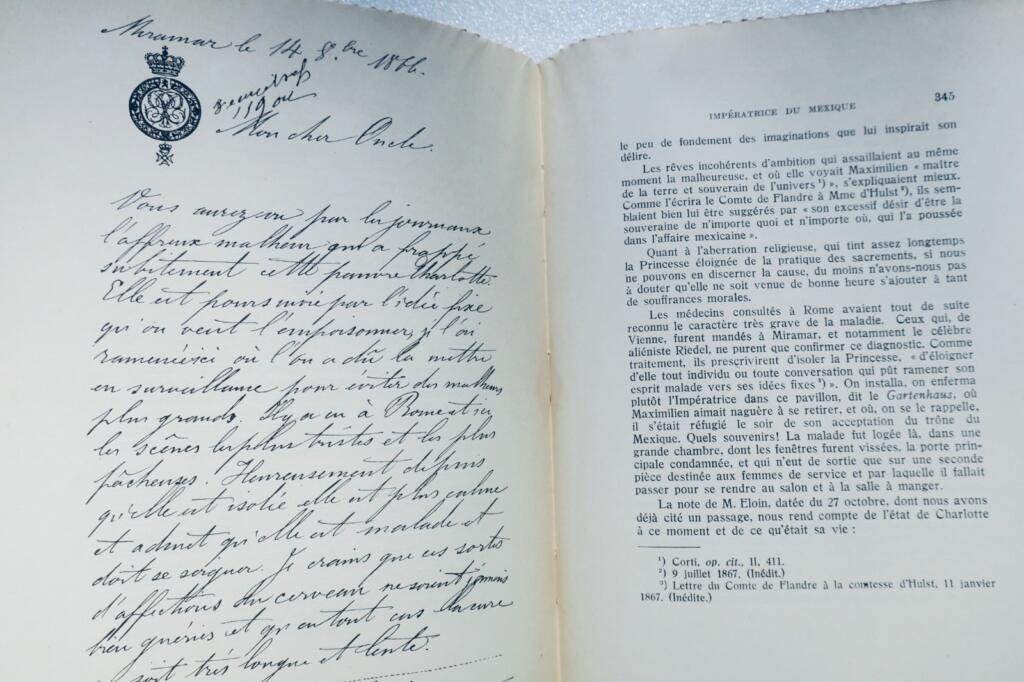 Miramar le 14 8.bre 1866.
Mon cher Oncle.
Vous aurez vu par les journaux
l'affreux malheur qui a frappé
subitement cette pauvre Charlotte.
Elle est poursuivie par l'idée fixe
qu'on veut l'empoisonner, je l'ai
ramenée ici où l'on a dû la mettre
en surveillance pour éviter des malheurs
plus grands. Il y a eu à Rome et ici
les scènes les plus tristes et les plus
fâcheuses. Heureusement depuis
qu'elle est isolée elle est plus calme
et admet qu'elle est malade et
doit se soigner. Je crains que ces sortes
d'affections du cerveau ne soient jamais
bien guéries et qu'en tout cas la cure
soit très longue et lente.
IMPÉRATRICE DU MEXIQUE 345
le peu de fondement des imaginations que lui inspirait son
délire.
Les rêves incohérents d'ambition qui assaillaient au même
moment la malheureuse, et où elle voyait Maximilien « maître
de la terre et souverain de l'univers ¹) », s'expliquaient mieux.
Comme l'écrira le Comte de Flandre à Mme d'Hulst ²), ils sem-
blaient bien lui être suggérés par « son excessif désir d'être la
souveraine de n'importe quoi et n'importe où, qui l'a poussée
dans l'affaire mexicaine ».
Quant à l'aberration religieuse, qui tint assez longtemps
la Princesse éloignée de la pratique des sacrements, si nous
ne pouvons en discerner la cause, du moins n'avons-nous pas
à douter qu'elle ne soit venue de bonne heure s'ajouter à tant
de souffrances morales.
Les médecins consultés à Rome avaient tout de suite
reconnu le caractère très grave de la maladie. Ceux qui, de
Vienne, furent mandés à Miramar, et notamment le célèbre
aliéniste Riedel, ne purent que confirmer ce diagnostic. Comme
traitement, ils prescrivirent d'isoler la Princesse, « d'éloigner
d'elle tout individu ou toute conversation qui pût ramener son
esprit malade vers ses idées fixes ³) ». On installa, on enferma
plutôt l'Impératrice dans ce pavillon, dit le Gartenhaus, où
Maximilien aimait naguère à se retirer, et où, on se le rappelle,
il s'était réfugié le soir de son acceptation du trône du
Mexique. Quels souvenirs! La malade fut logée là, dans une
grande chambre, dont les fenêtres furent vissées, la porte prin-
cipale condamnée, et qui n'eut de sortie que sur une seconde
pièce destinée aux femmes de service et par laquelle il fallait
passer pour se rendre au salon et à la salle à manger.
La note de M. Eloin, datée du 27 octobre, dont nous avons
déjà cité un passage, nous rend compte de l'état de Charlotte
à ce moment et de ce qu'était sa vie :
¹) Corti, op. cit., II, 411.
²) 9 juillet 1867. (Inédit.)
³) Lettre du Comte de Flandre à la comtesse d'Hulst, 11 janvier
1867. (Inédite.)